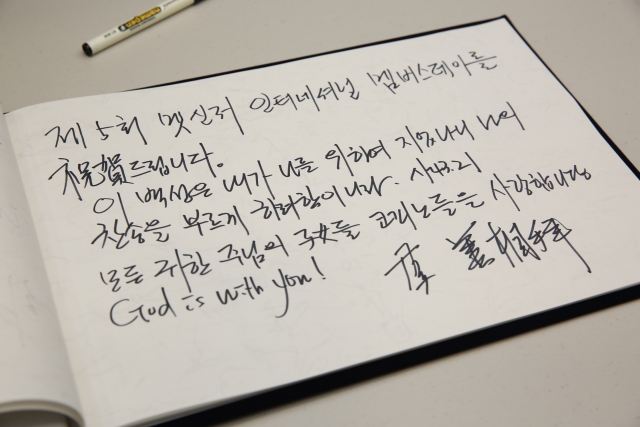 제5회 멧신저 인터네셔널 멤버스데이를
祝賀드립니다.
이 백성은 내가 나를 위하여 지었나니 나의
찬송을 부르게 하려함이니라. 사43:21
모든 귀한 주님의 子女들 코피노들을 사랑합니다
God is with you!
善相拜